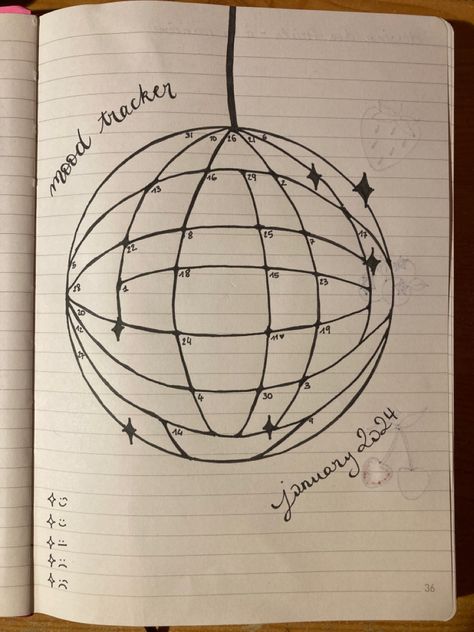 mood tracker
31 10 26 21 6
16 29 2
13
22 8 25 7 17
5
28 1 18 15 23
20
12 24 11♥ 19
27
4 30 3
14 9
january 2024
:)
:)
:|
:(
:(
36